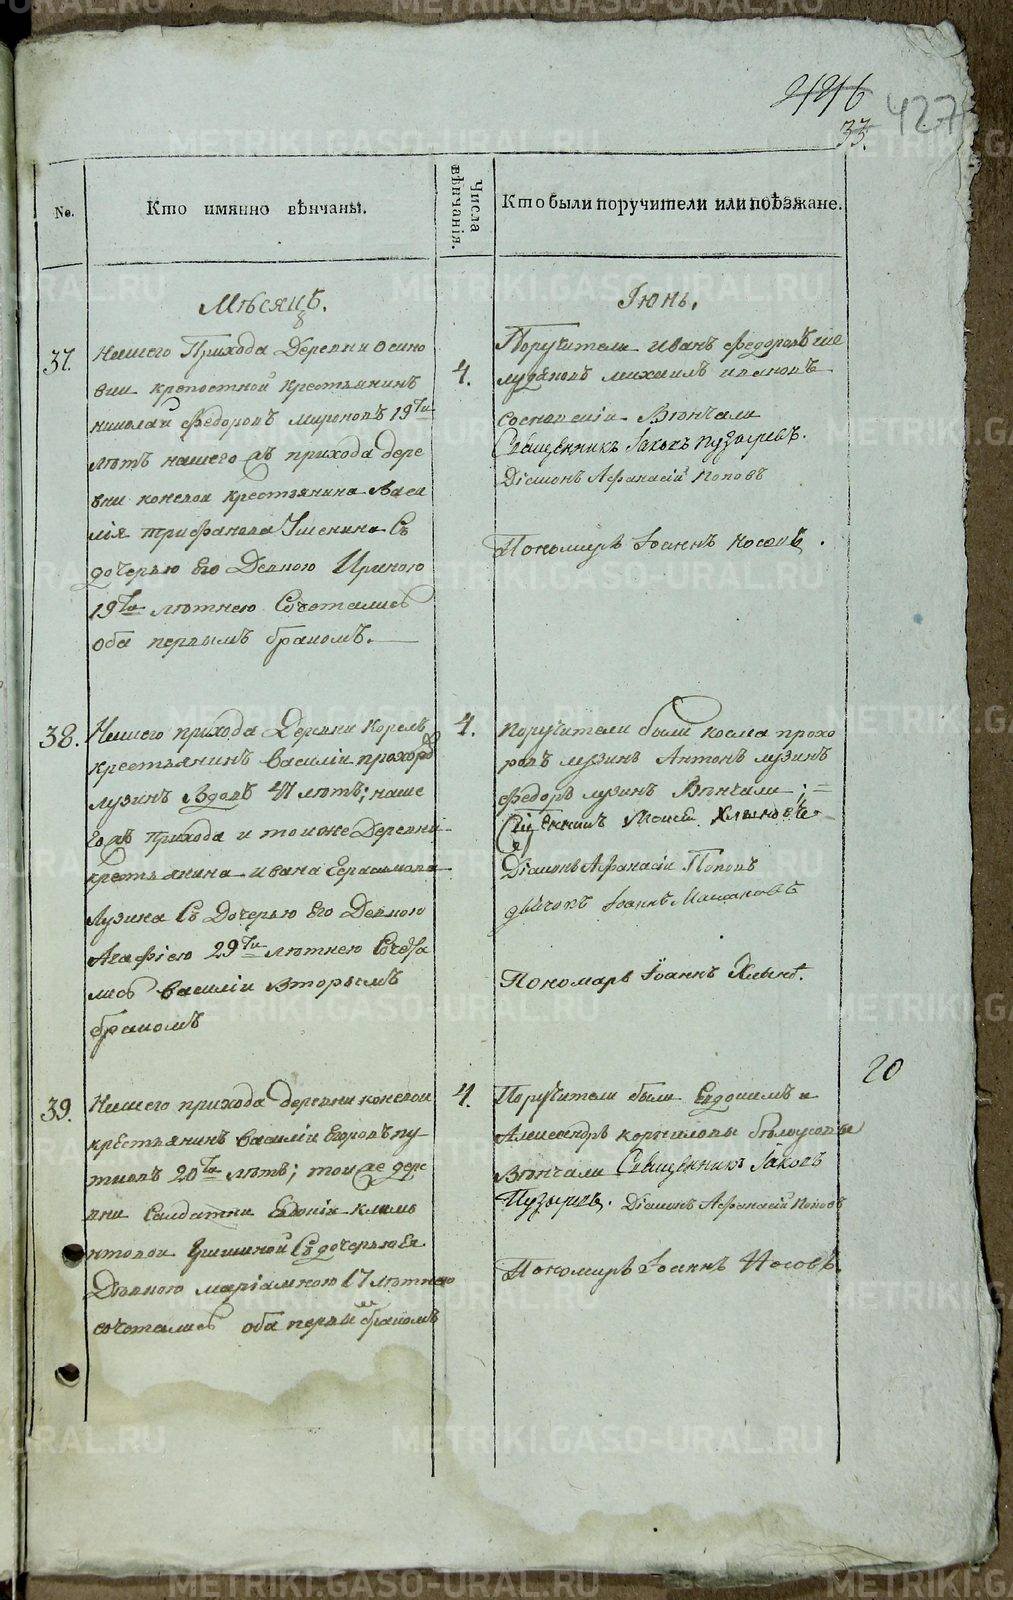 427
33.
№.
Кто имянно вѣнчаны.
Числа вѣнчанія.
Кто были поручители или поѣзжане.
Мѣсяцъ.
Іюнь.
37.
Нашего Прихода Деревни Осино
вки крепостной крестьянинъ
николай Федоровъ мироновъ 19ти
лѣтъ нашего жъ прихода дере
вни коневои крестьянина Васи
лія трифанова Ушенина Съ
дочерью Его Девкою Ириною
19ти лѣтнею Сочетались
оба первымъ бракомъ.
4.
Поручители иванъ федоровъ
михаилъ ивановъ
Вѣнчали
Священникъ Іаковъ пузыревъ.
Діаконъ Афанасій поповъ
Пономарь Іоаннъ носовъ.
38.
Нашего прихода Деревни Корелъ
крестьянинъ василіи прохоровъ
лузинъ вдовъ 47 лѣтъ; наше
го жъ прихода и тоиже Деревни
крестьянина ивана Герасимова
Лузина Съ Дочерью Его Девкою
Агафіею 29ти лѣтнею Сочета
лись василіи вторымъ
бракомъ
4.
поручители были косма прохо
ровъ лузинъ Антонъ лузинъ
федоръ лузинъ Вѣнчали
Священникъ Моисеи
Діаконъ Афанасіи Поповъ
дьячокъ Іоаннъ
Пономарь Іоаннъ
20
39.
Нашего прихода деревни коневои
крестьянинъ василіи егоровъ пу
тковъ 20ти лѣтъ; тои же дере
вни Салдатки Евдокіи климе
нтовои Съ дочерью Ея
Девкою маріамною 17 лѣтнею
сочетались оба первымъ бракомъ
4.
Поручители были Евдокимъ и
Александръ корниловы бѣлоусовы
Вѣнчали Священникъ Іаковъ
Пузыревъ. Діаконъ Афанасій поповъ
Пономарь Іоаннъ Носовъ.
METRIKI.GASO-URAL.RU